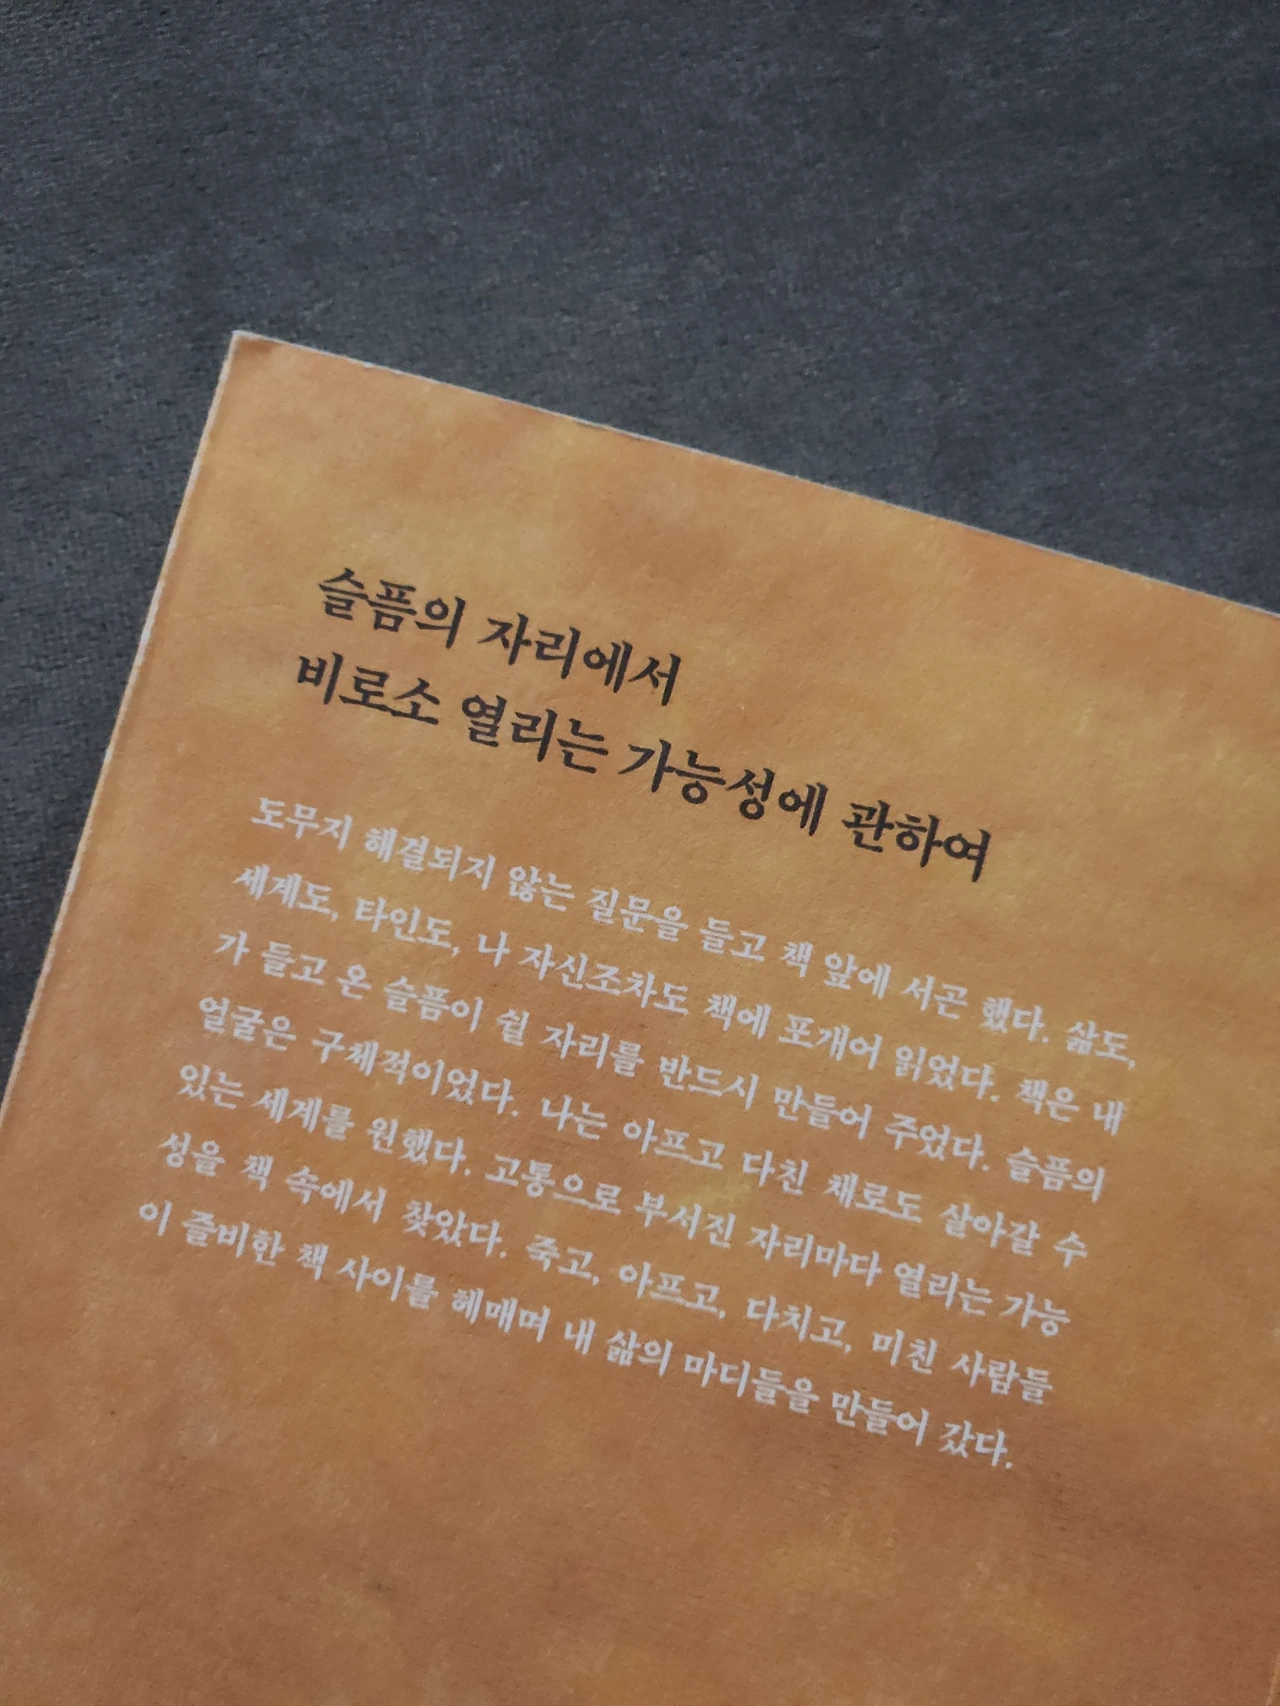 슬픔의 자리에서
비로소 열리는 가능성에 관하여
도무지 해결되지 않는 질문을 들고 책 앞에 서곤 했다. 삶도,
세계도, 타인도, 나 자신조차도 책에 포개어 읽었다. 책은 내
가 들고 온 슬픔이 쉴 자리를 반드시 만들어 주었다. 슬픔의
얼굴은 구체적이었다. 나는 아프고 다친 채로도 살아갈 수
있는 세계를 원했다. 고통으로 부서진 자리마다 열리는 가능
성을 책 속에서 찾았다. 죽고, 아프고, 다치고, 미친 사람들
이 즐비한 책 사이를 헤매며 내 삶의 마디들을 만들어 갔다.